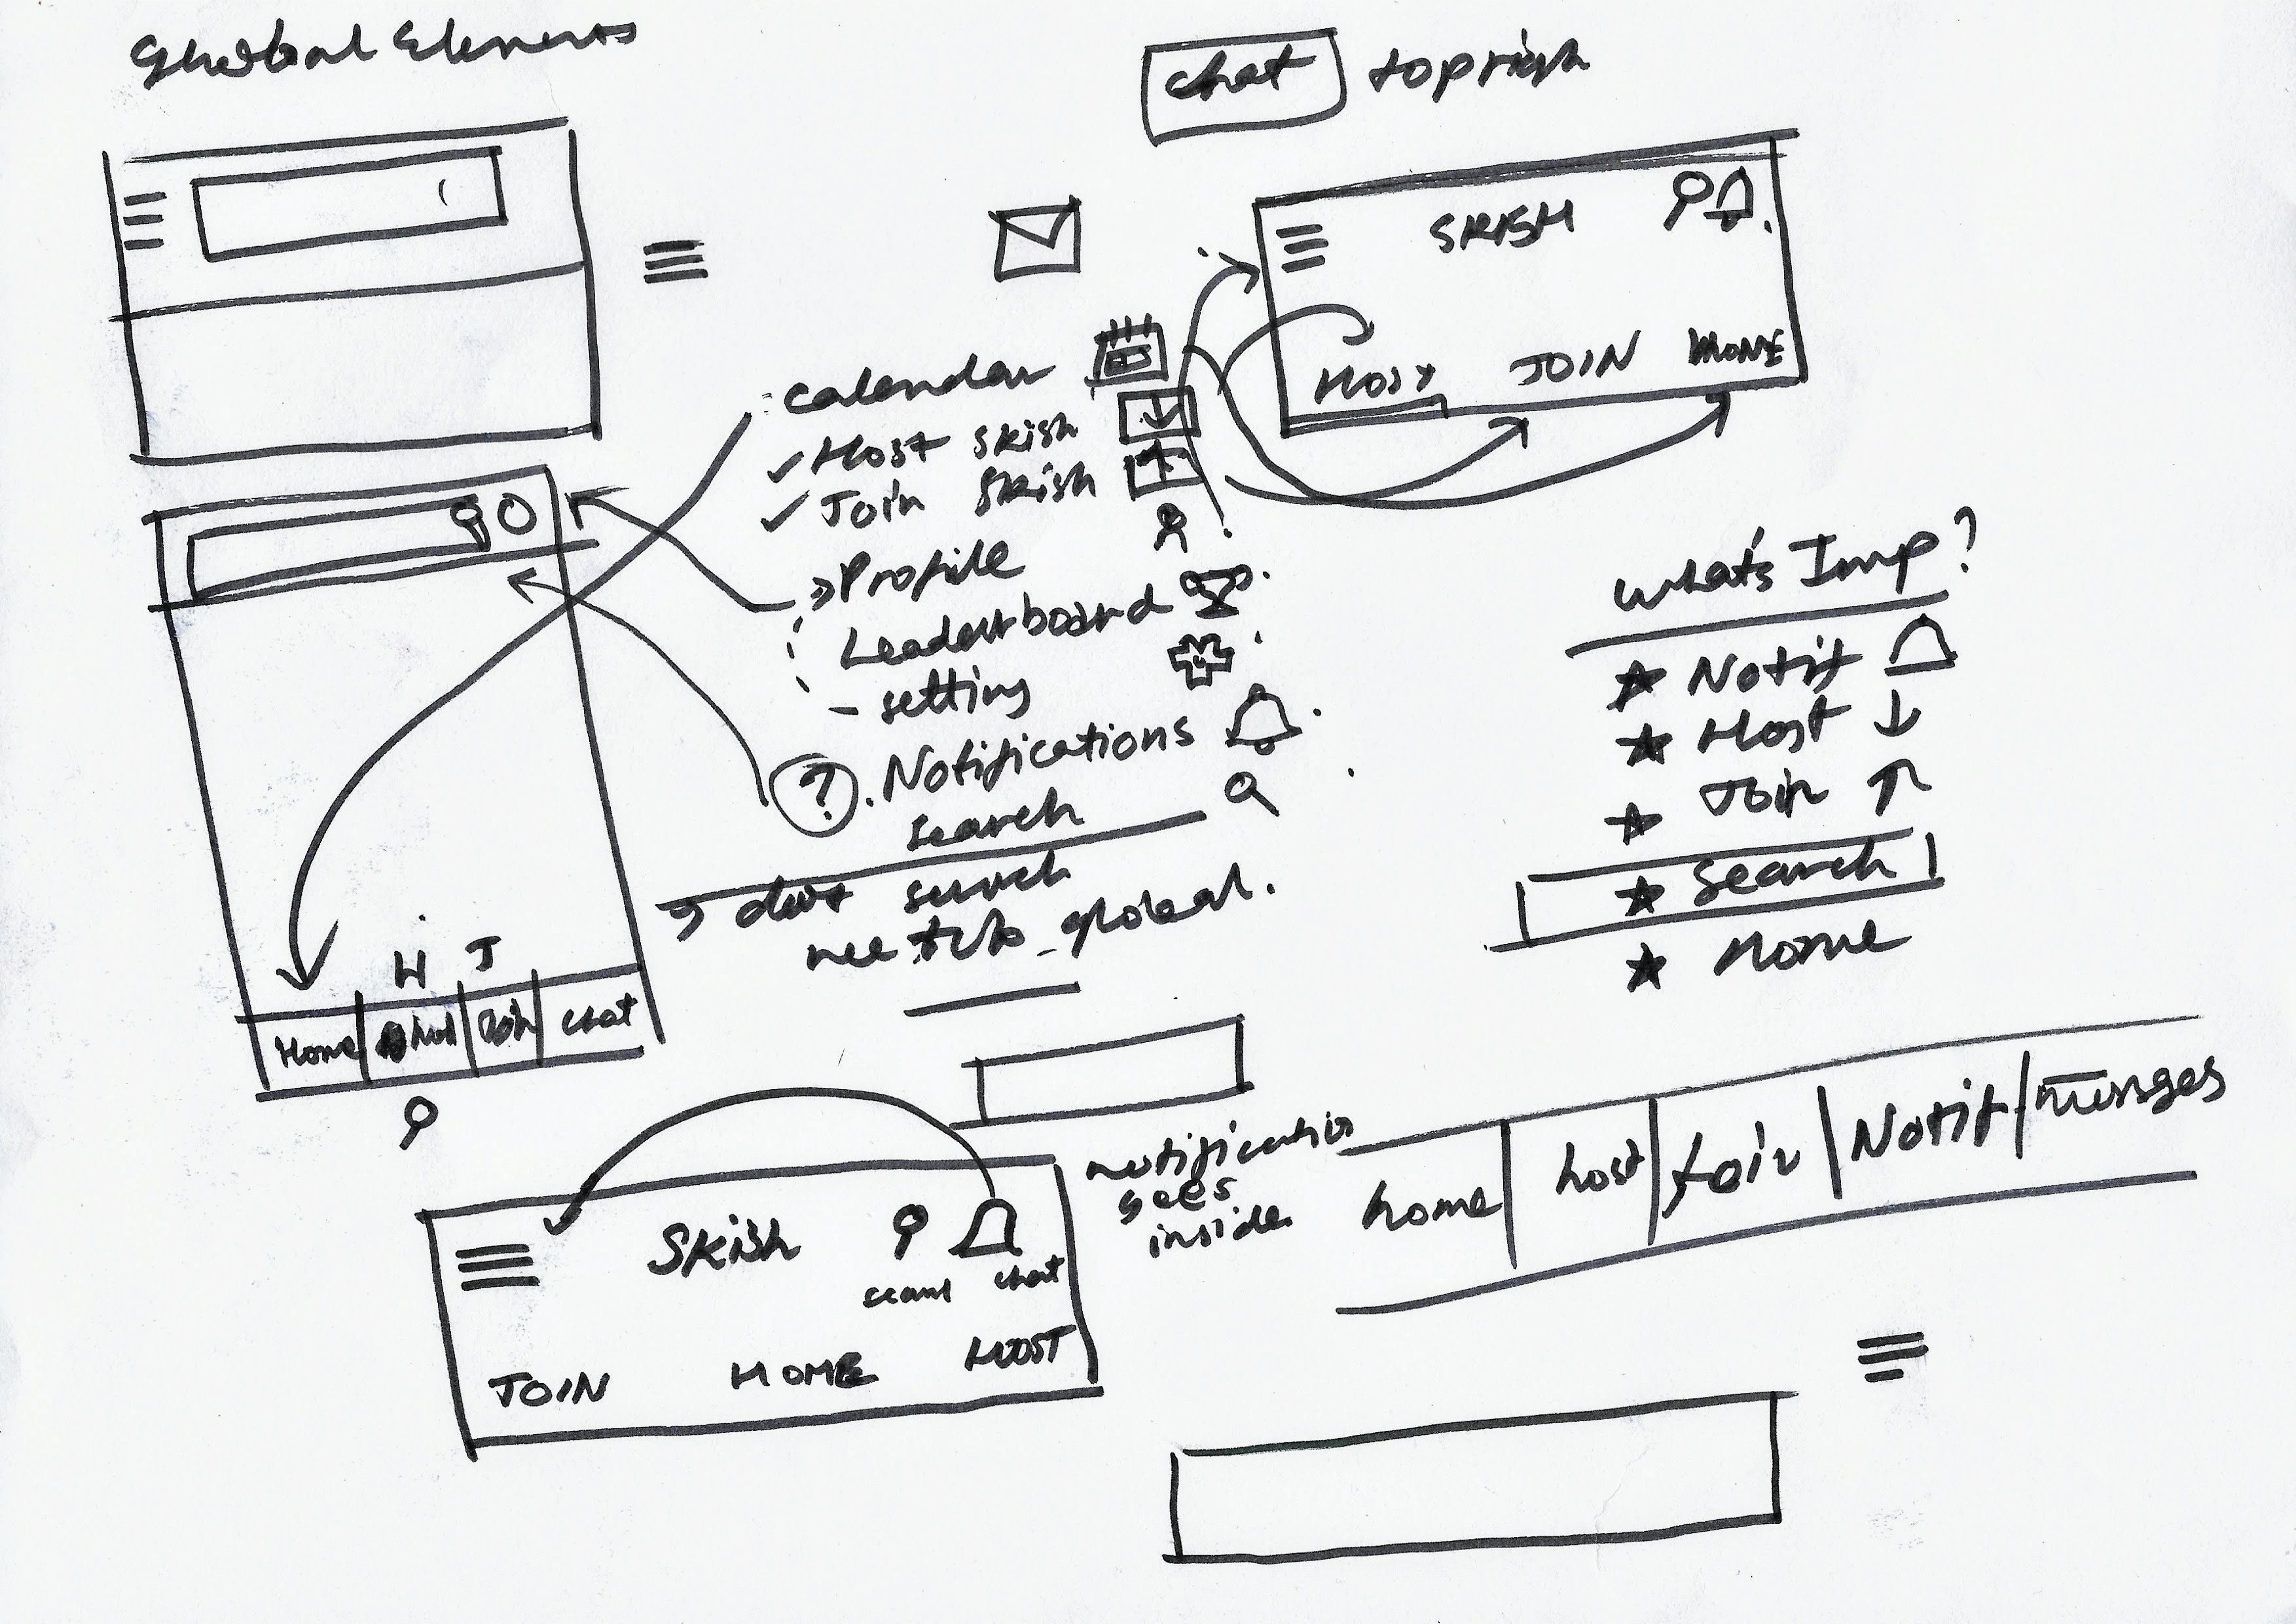 Global Elements
chat topright
SKISH
HOST JOIN HOME
calendar
✓ Host skish
✓ Join skish
Profile
Leaderboard
- setting
? . Notifications
search
search
global.
what's Imp?
★ Notif
★ Host ↓
★ Join ↑
★ search
★ Home
H J
Home Host Join chat
home host join Notif
notification
goes
inside
Skish
chat
JOIN HOME HOOST